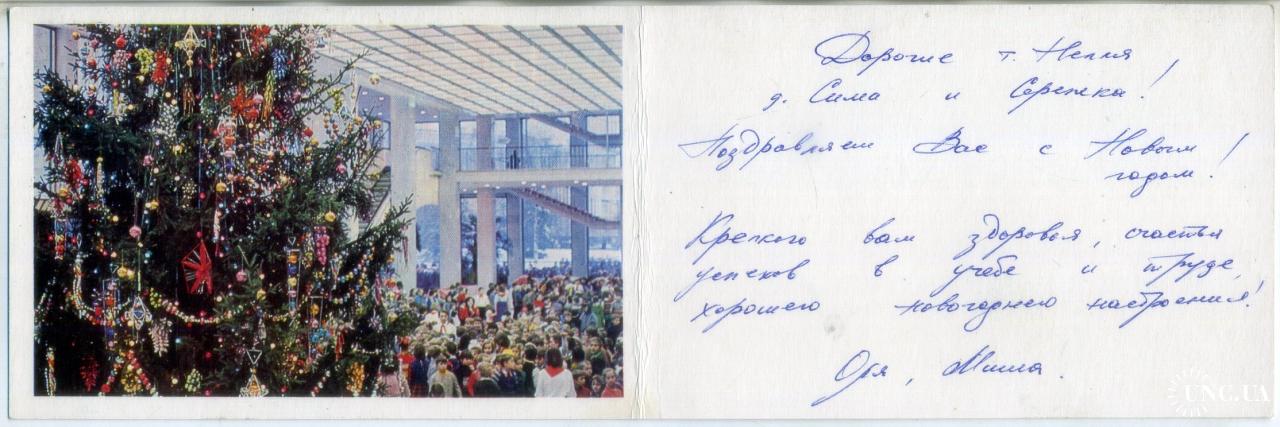 Дорогие т. Нелля,
д. Сима и Сережка!
Поздравляем Вас с Новым
годом!
Крепкого вам здоровья, счастья
успехов в учебе и труде,
хорошего новогоднего настроения!
Оля, Миша.
UNC.UA